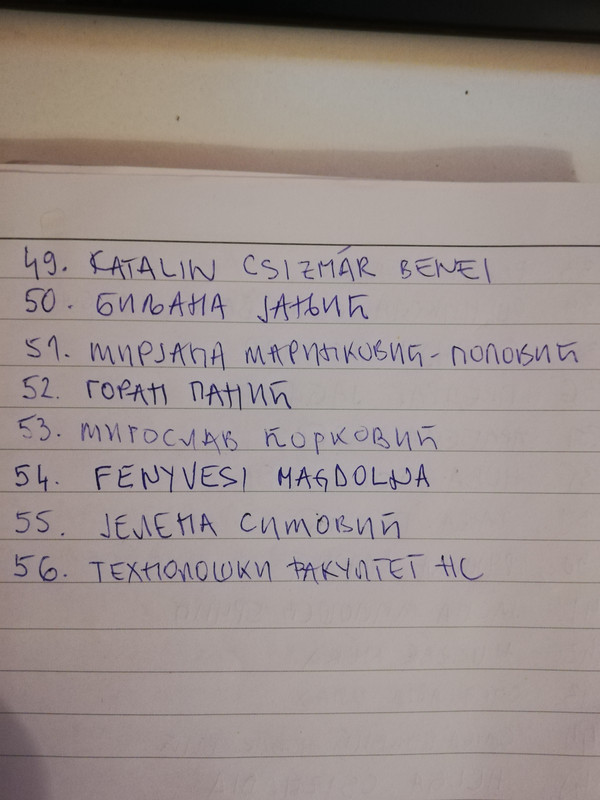 49. KATALIN CSIZMÁR BENEI
50. БИЉАНА ЈАЊИЋ
51. МИРЈАНА МАРИНКОВИЋ-ПОПОВИЋ
52. ГОРАН ПАНИЋ
53. МИРОСЛАВ ЋОРКОВИЋ
54. FENYVESI MAGDOLNA
55. ЈЕЛЕНА СИМОВИЋ
56. ТЕХНОЛОШКИ ФАКУЛТЕТ НС